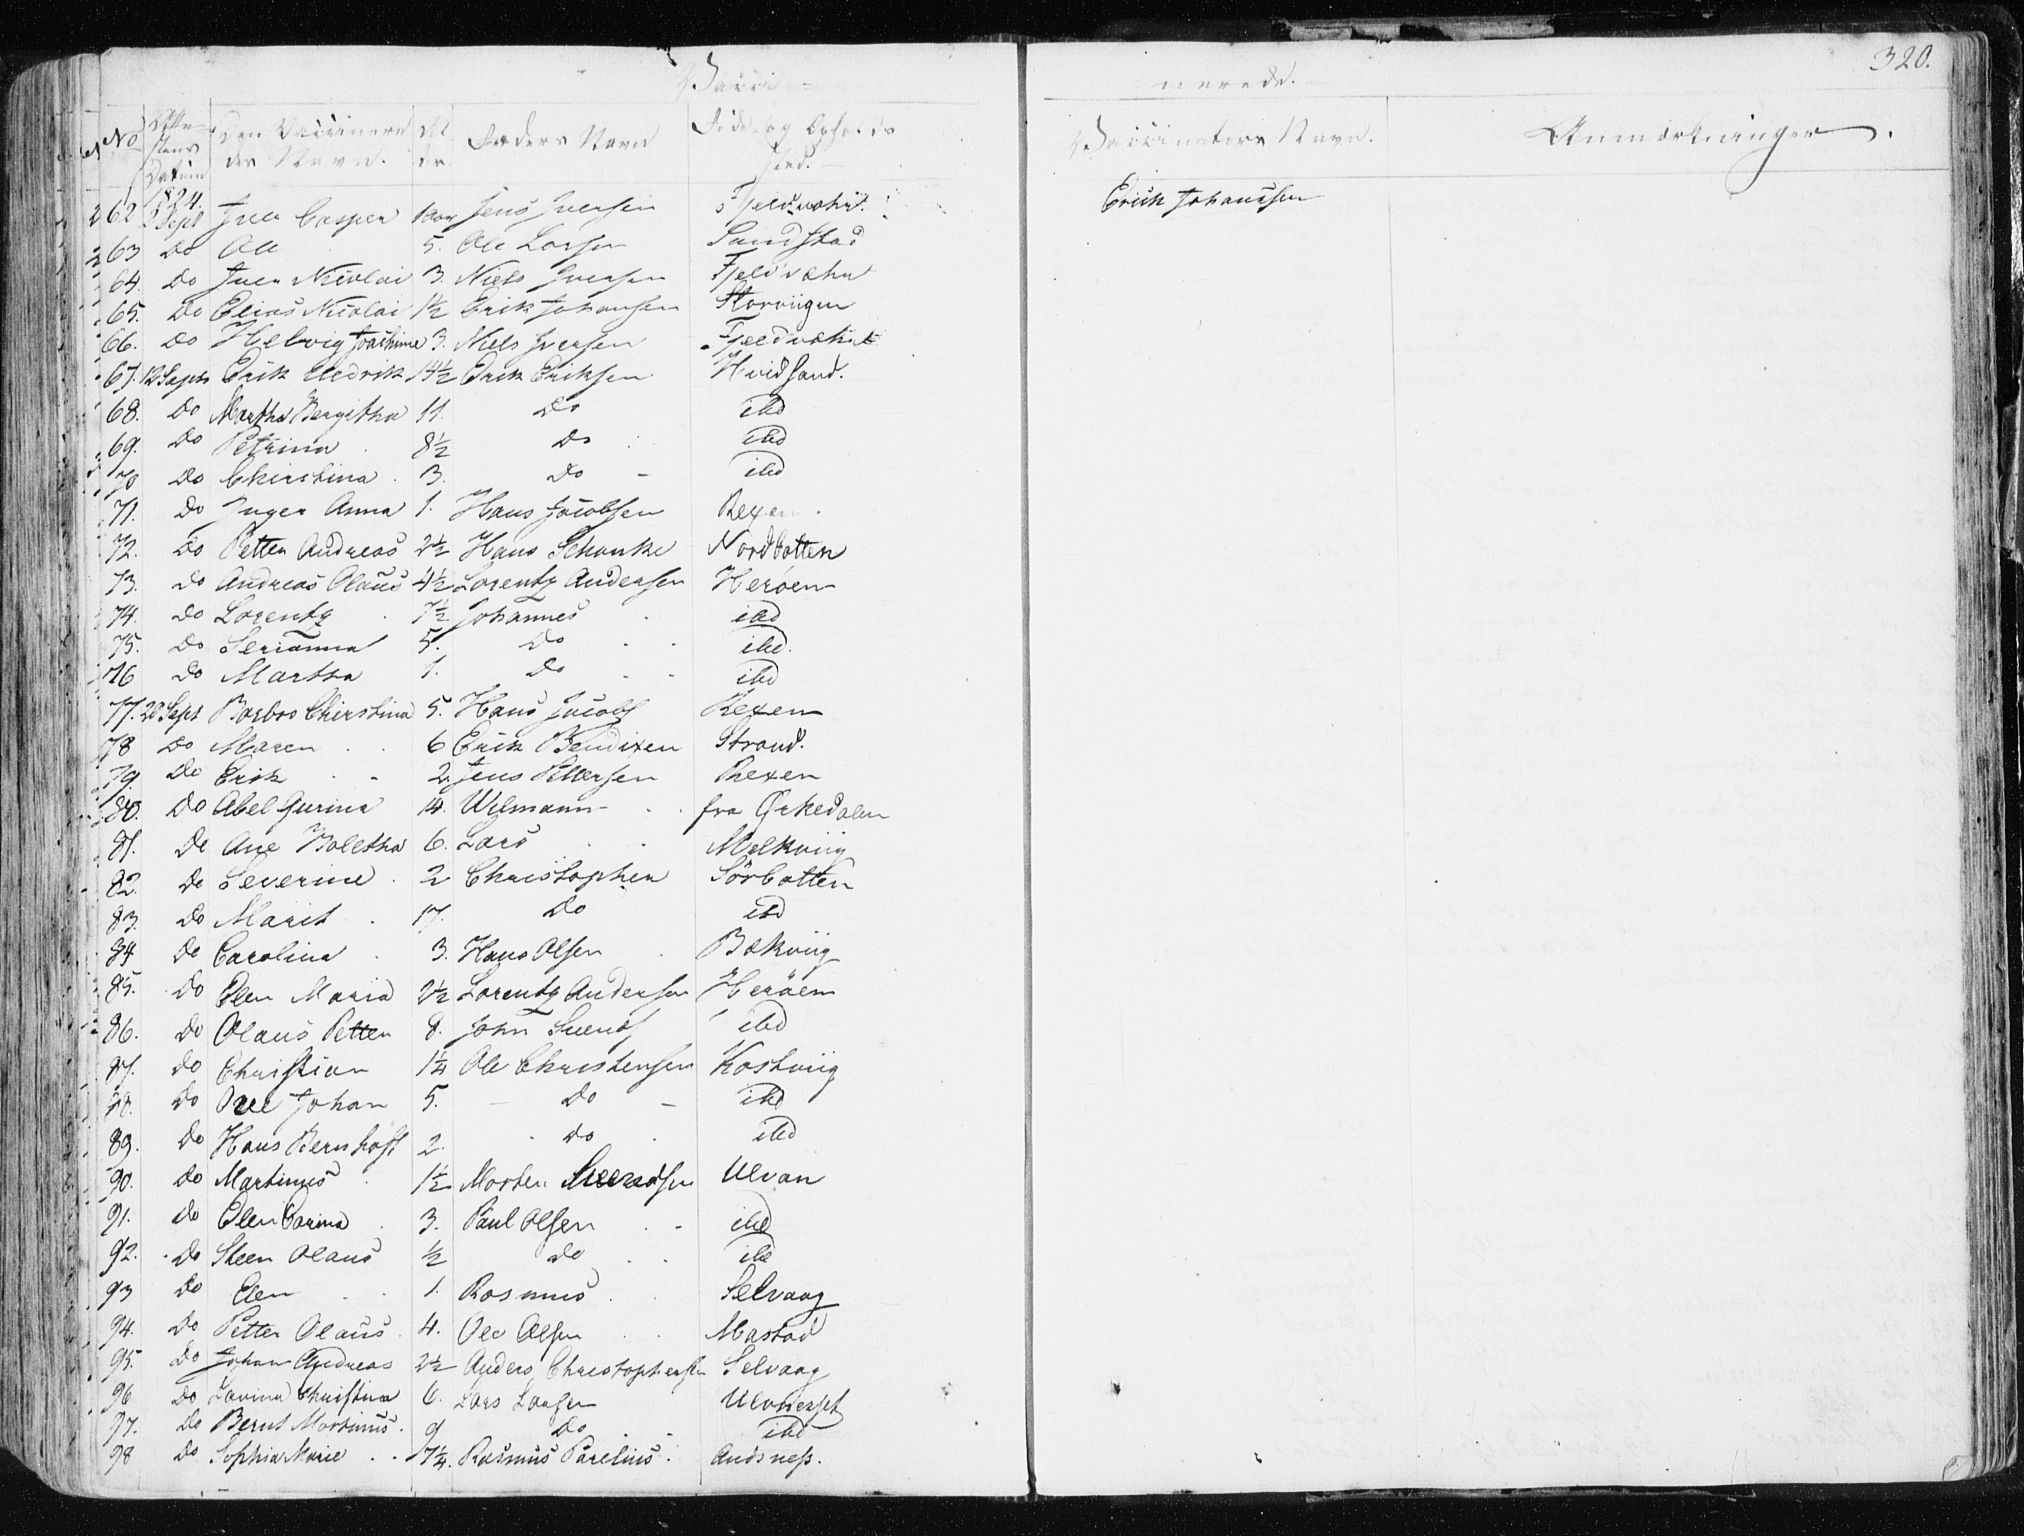 Vacci-
nerede.
320.
No
Datum
Den Vaccinere-
des Navn.
Al
der
Faders Navn
Føde og Opholds
sted.
Vaccinators Navn.
Anmærkninger.
1824.
62 2 Sept Iver Casper 1 Aar Jens Iversen Fjeldværet. Erick Johanssen
63 Do Ole 5. Ole Larsen Sandstad
64. Do Iver Nicolai 3. Niels Iversen Fjeldværet
65. Do Elias Nicolai 1½ Erik Johansen Storviigen
66. Do Helvig Joachime 3. Niels Iversen Fjeldværet
67. 12 Septr Erik Uldrik 14½ Erik Eriksen Hvidsand.
68. Do Martha Bergitha 11. Do ibd
69. Do Petrina 8½ Do ibd
70 Do Chirstina 3. Do ibd
71. Do Inger Anna 1. Hans Jacobsen Rexen
72. Do Petter Andreas 2½ Hans Schanke Nordbotten
73. Do Andreas Olaus 4½ Lorentz Andersen Herøen
74. Do Lorentz 7½ Johannes ibd
75. Do Serianna 5. Do ibd.
76 Do Martha 1. Do ibd
77. 20 Sept Barbro Chirstina 5. Hans Jacobs Rexen
78 Do Maren 6 Erik Bendixen Strand.
79. Do Erik 2. Jens Pettersen Rexen
80. Do Abel Gurina 14. Wilmann fra Ørkedalen
81. Do Ane Boletha 6. Lars Melkviig
82. Do Severine 2 Christopher Sörbotten
83. Do Marit 17. Do ibd
84 Do Carolina 3. Hans Olsen Bækviig
85. Do Elen Maria 2½ Lorentz Andersen Heröen
86. Do Olaus Petter 8. John Svends ibd
87. Do Christian 1¼ Ole Christensen Kostviig
88. Do Ole Johan 5. Do ibd
89. Do Hans Bernhoft 2. Do ibd
90. Do Martinus 1½ Morten Sivertsen Ulvan
91. Do Elen Carina 3. Paul Olsen ibd
92. Do Steen Olaus ½ Do ibd
93 Do Elen 1. Rasmus Selvaag
94. Do Petter Olaus 4. Ole Olsen Mastad
95. Do Johan Andreas 2½ Anders Christophersen Selvaag
96 Do Lavina Christina 6. Lars Larsen Ulvnesset
97. Do Bernt Martinus. 9 Do ibd
98 Do Sophia Marie 7¼. Rasmus Parelius. Andsness.